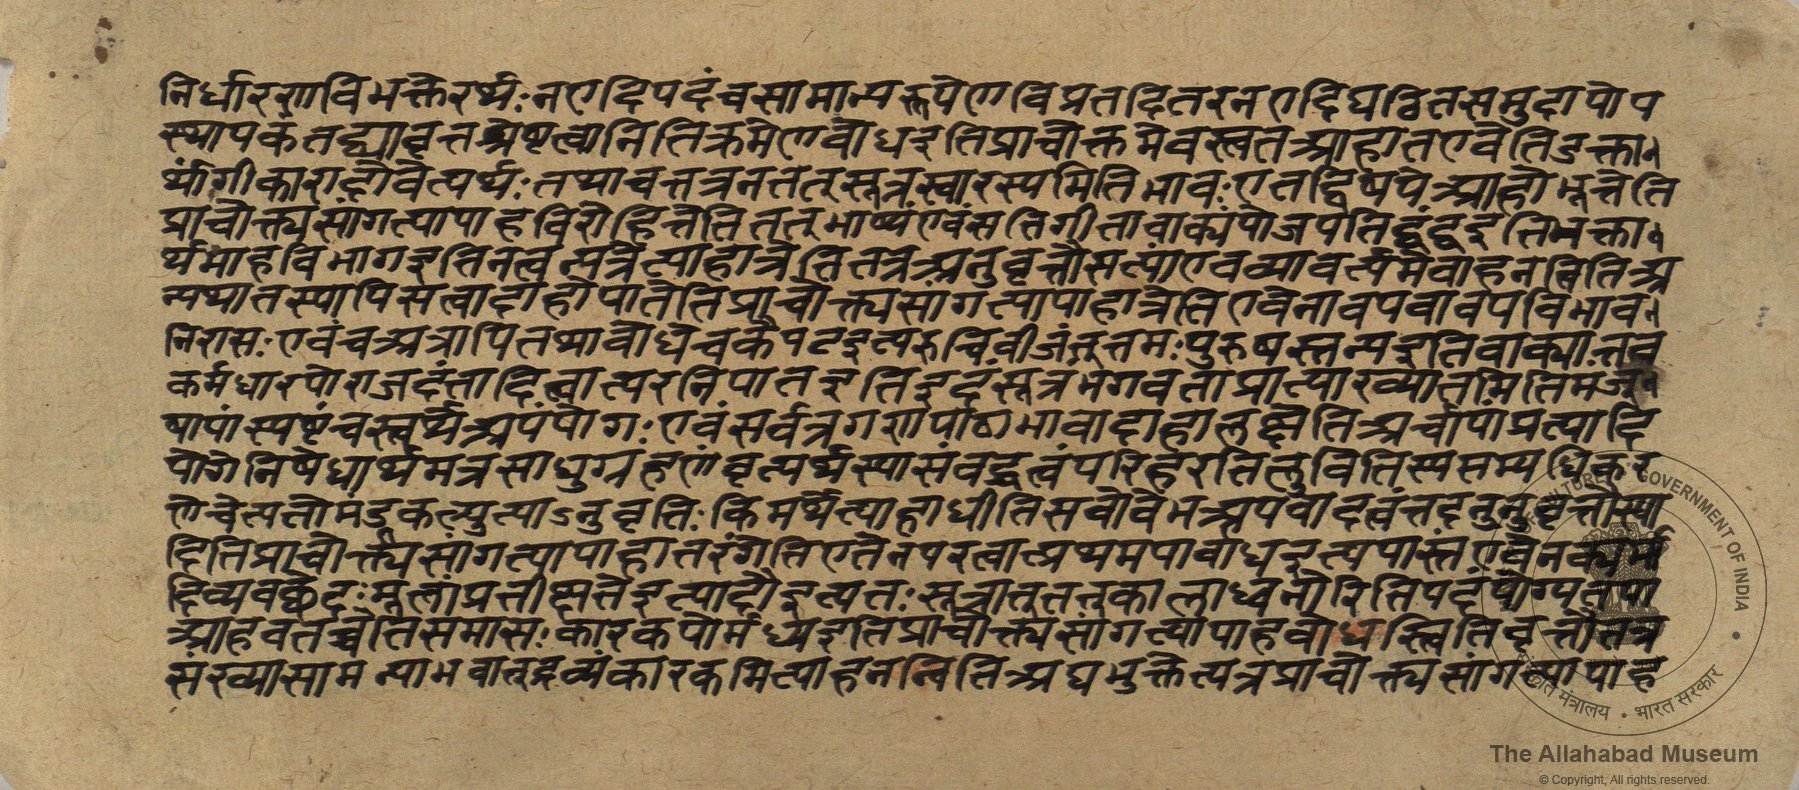 निर्धारणविभक्तेरर्थः नएदिपदंचसामान्यरूपेणविप्रतदितरनएदिघटितसमुदापोप
स्थापकंतद्व्यावृत्तश्रेष्टत्वानितिक्रमेणवोधइतिप्राचोक्तमेवस्वतआहातएवेतिङक्ता
र्थांगीकारादेवेत्यर्थः तथाचतत्रनतत्सूत्रस्वारस्यमितिभावः एतद्विषपेआहोभूत्तेति
प्राचोक्त्यसांगत्यापाहविरोहित्तेतितत्तुभाष्यंएवंसतिगीतावाक्यंपोजपतिद्वंद्वइतिभक्ता
र्थमाहविभागइतिनत्वत्यत्रेत्याहात्रेतितत्रेअनुवृत्तौसत्यांएवव्यावर्त्यमेवाहनन्वितिअ
न्यथातस्यापिसत्वादाहोपातेतिप्राचोक्त्यसांगत्यापाहात्रेतिएवेनावपवावपविभाव
निरासः एवंचअत्रापितथावोधेचकैपटइत्यरुचिवीजंतूत्तमः पुरुषस्तन्यइतिवाक्यात्तव
कर्मधारपोराजदंतादित्वात्परनिपातइतिइदंसूत्रंभगवताप्रात्याख्यातमितिमजू
षापांस्पष्टंचस्वर्थेअपंपोगः एवंसर्वत्रगणपाठाभावादाहालक्ष्मेतिअर्चापाप्रत्यादि
पोगेनिषेधार्थमत्रसाधुग्रहणंवृत्यर्थस्यासंवद्धत्वंपरिहरतितुवितिस्यसम्यधिकर
णेचेत्यतोमंडकत्युत्याऽनुवृत्तिः किमर्थेत्याहाधीतिसर्वोवेमअपवादत्वंत्तदनुनुवृत्तौस्या
दितिप्राचोक्त्यसांगत्यापाहातरंगेतिएतेनपरत्वात्प्रथमपावाधइत्यपास्तंएवेनवत्यर्थ
दिव्यवछेदः मूलांप्रतीक्षत्तेइत्यादौइत्यतः सूत्रात्तुतत्तुकालाध्वनोरितिपदंपोग्यतपा
आहवतच्चेतिसमासः कारकपोर्मध्यइतिप्राचोक्त्यसांगत्यापाहवोध्यस्त्वितिवृत्तौतत्र
संख्यासामन्याभवात्तुद्रव्यंकारकमित्याहनन्वितिअघमुक्तेत्यत्रप्राचोक्त्यसांगत्यापाह
MINISTRY OF CULTURE • GOVERNMENT OF INDIA
संस्कृति मंत्रालय • भारत सरकार
The Allahabad Museum
© Copyright, All rights reserved.